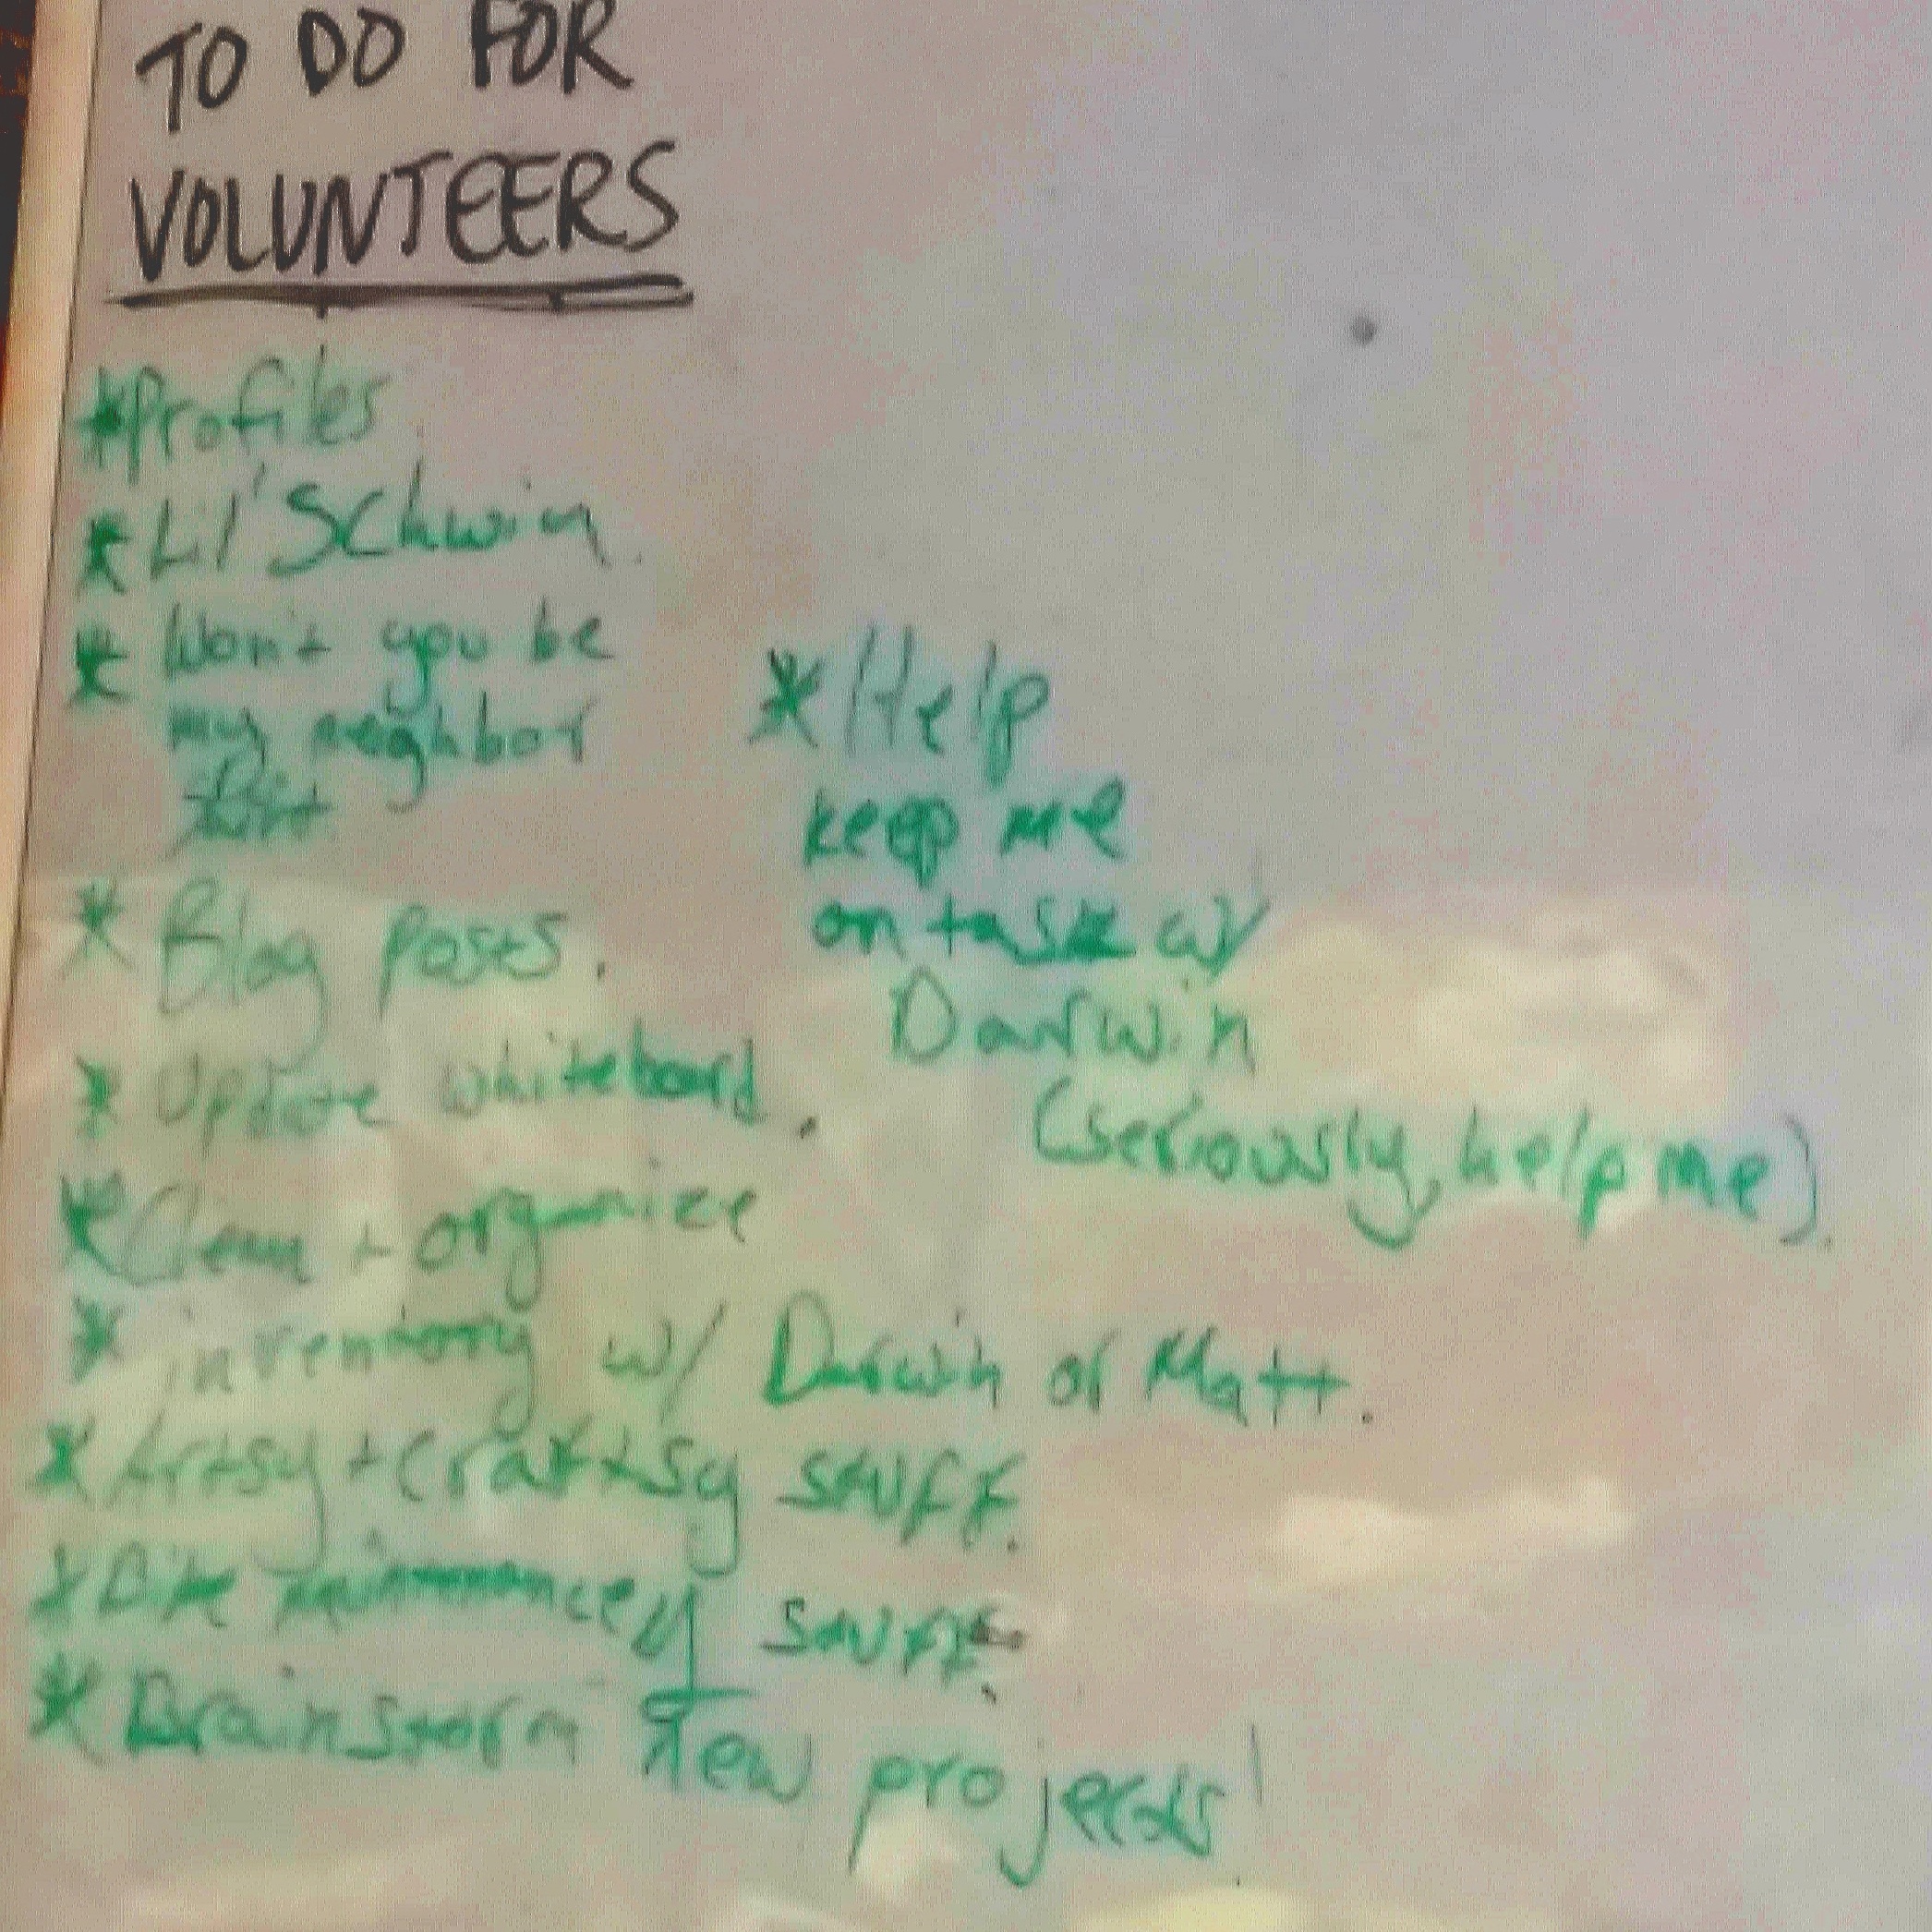 TO DO FOR
VOLUNTEERS
*Profiles
*Lil' Schwin.
* Won't you be
my neighbor
list
* Blog posts.
* Update whiteboard.
*Clean + organize
* inventory w/ Darwin or Matt.
*Artsy + Craftsy stuff.
*Bike maintenancey stuff.
*Brainstorm new projects!
*Help
keep me
on task w/
Darwin
(seriously, help me).